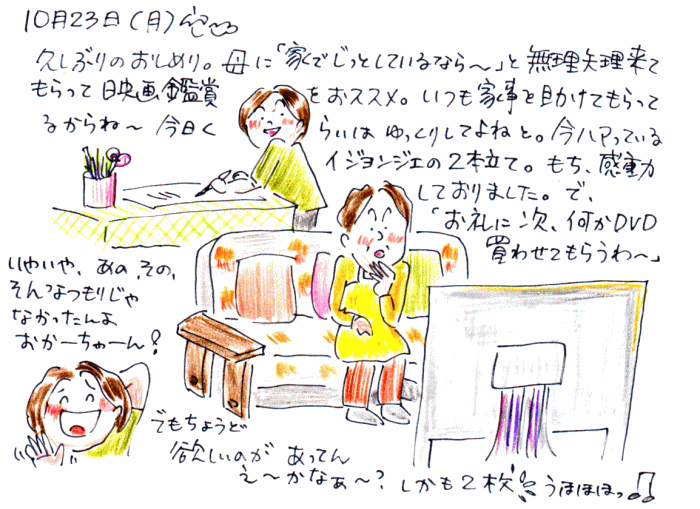 10月23日(月)
久しぶりのおしめり。母に「家でじっとしているなら〜」と無理矢理来て
もらって映画鑑賞をおススメ。いつも家事を助けてもらって
るからね〜 今日くらいはゆっくりしてよねと。今ハマっている
イジョンジェの2本立て。もち、感動
しておりました。で、
「お礼に次、何かDVD
買わせてもらうわ〜」
いやいや、あの、その、
そんなつもりじゃ
なかったんよ
おかーちゃーん!
でもちょうど
欲しいのが あってん
え〜かなぁ〜? しかも2枚 うほほほっ♫